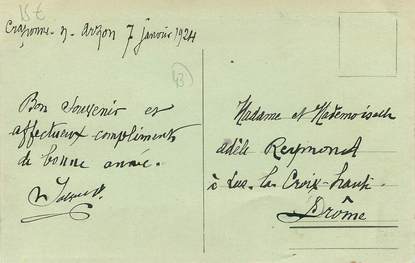 15 €
Craponne-s-Arzon 7 janvier 1924
43
Bon Souvenir et
affectueux compliments
de bonne année.
Madame et Mademoiselle
adèle Reymond
à Lus-la-Croix-haute
Drôme